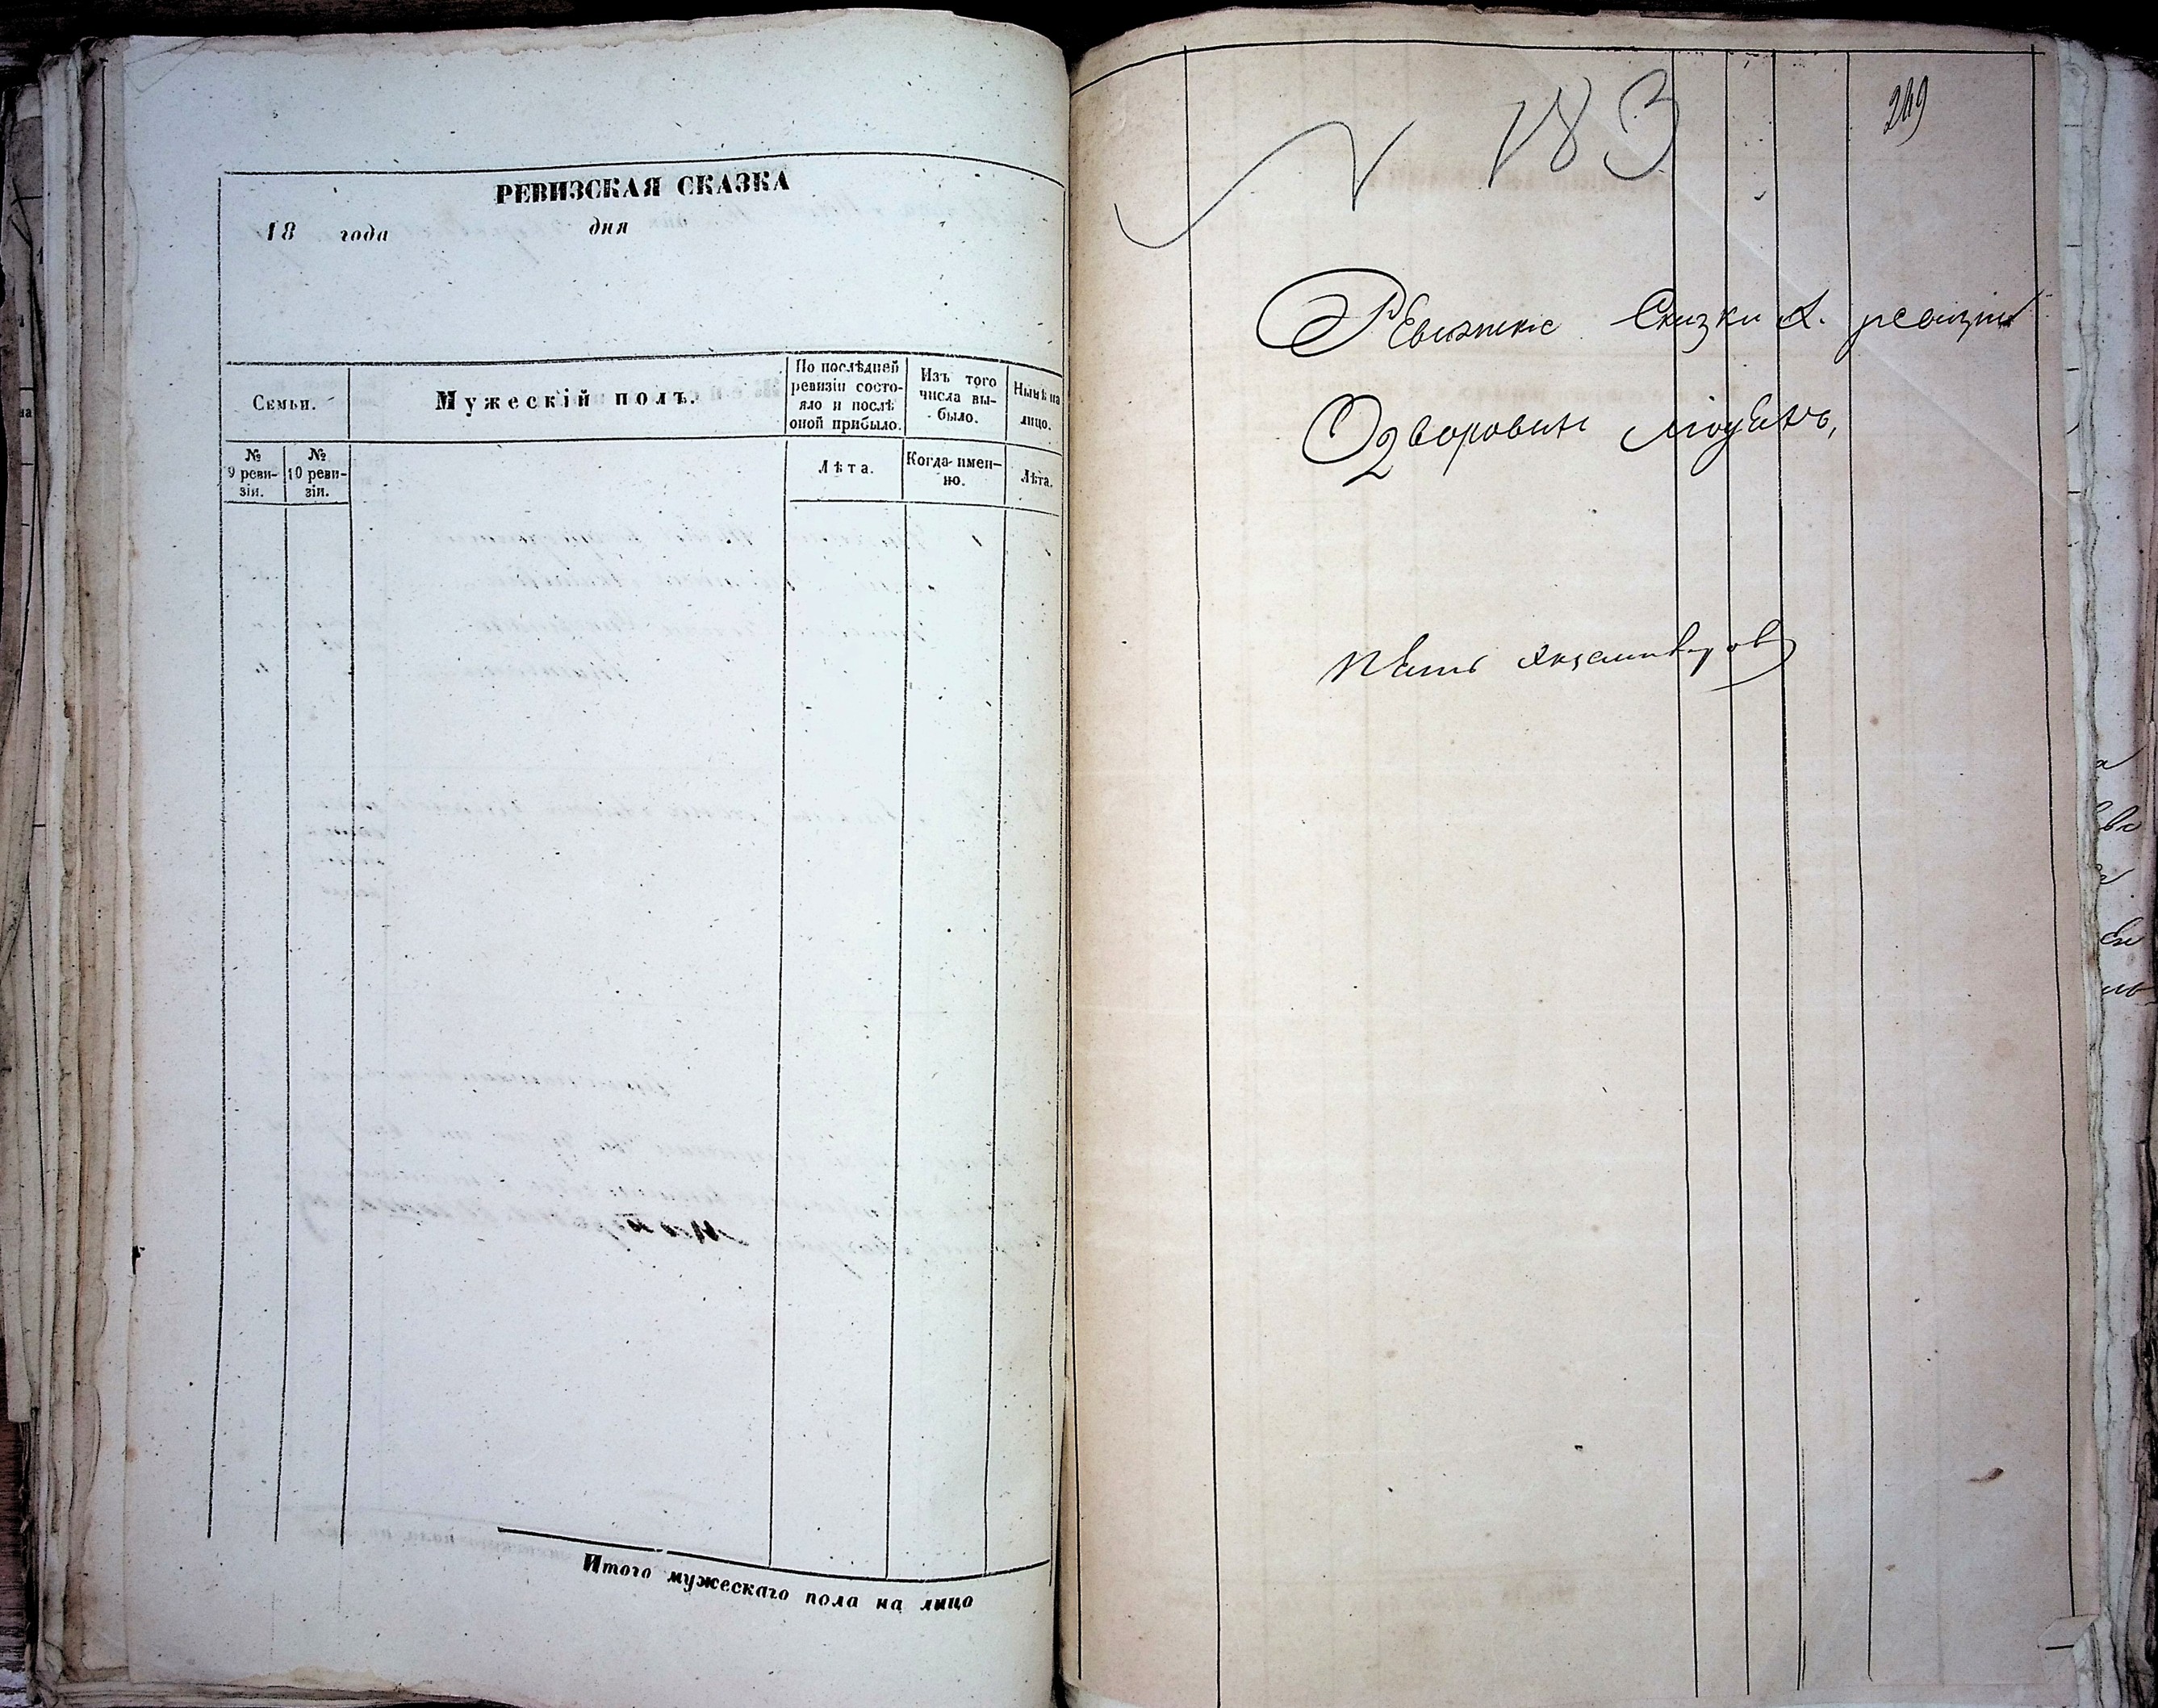 РЕВИЗСКАЯ СКАЗКА
18 года дня
Семьи.
Мужескій полъ.
По послѣдней
ревизіи состо-
яло и послѣ
оной прибыло.
Изъ того
числа вы-
было.
Нынѣ на
лицо.
№
9 реви-
зіи.
№
10 реви-
зіи.
Лѣта.
Когда имен-
но.
Лѣта.
Итого мужескаго пола на лицо
N 183
249
Ревизкіе Сказки X. ревизіи
О дворовыхъ людехъ,